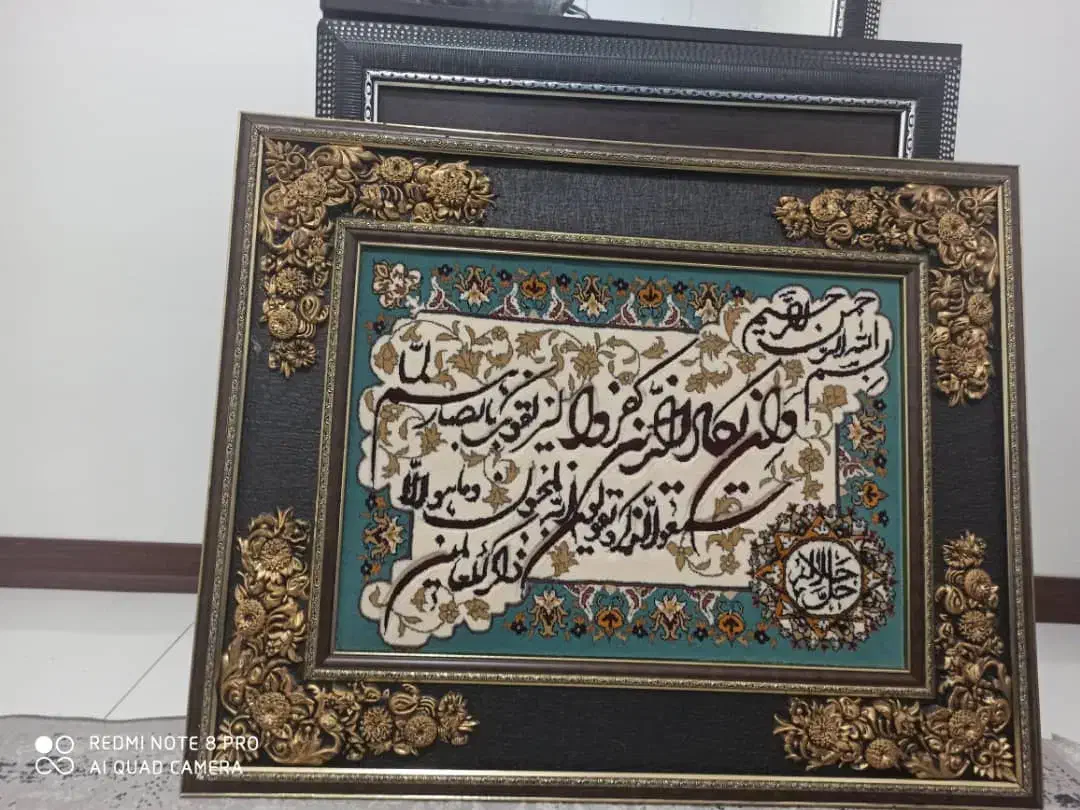 بسم الله الرحمن الرحيم
وان يكاد الذين كفروا ليزلقونك بابصارهم لما
سمعوا الذكر ويقولون انه لمجنون وما هو الا
ذكر للعالمين
جل جلاله
REDMI NOTE 8 PRO
AI QUAD CAMERA